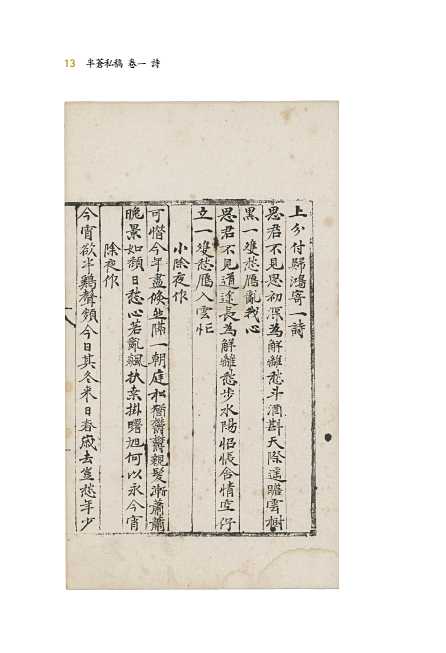 13 半蒼私稿 卷一 詩
上 分付歸鴻寄一詩
思君不見思初深為解離愁斗酒斟天際遙瞻雲樹
黑一雙愁鴈亂我心
思君不見道途長為解離愁步水陽怊悵含情空佇
立一雙愁鴈入雲忙
小除夜作
可惜今年盡倏然滿一朝庭松猶鬱鬱親髮漸蕭蕭
晚景如頹日愁心若亂飆扶桑掛曙旭何以永今宵
除夜作
今宵欲半鷄聲頻今日其冬來日春歲去豈愁年少